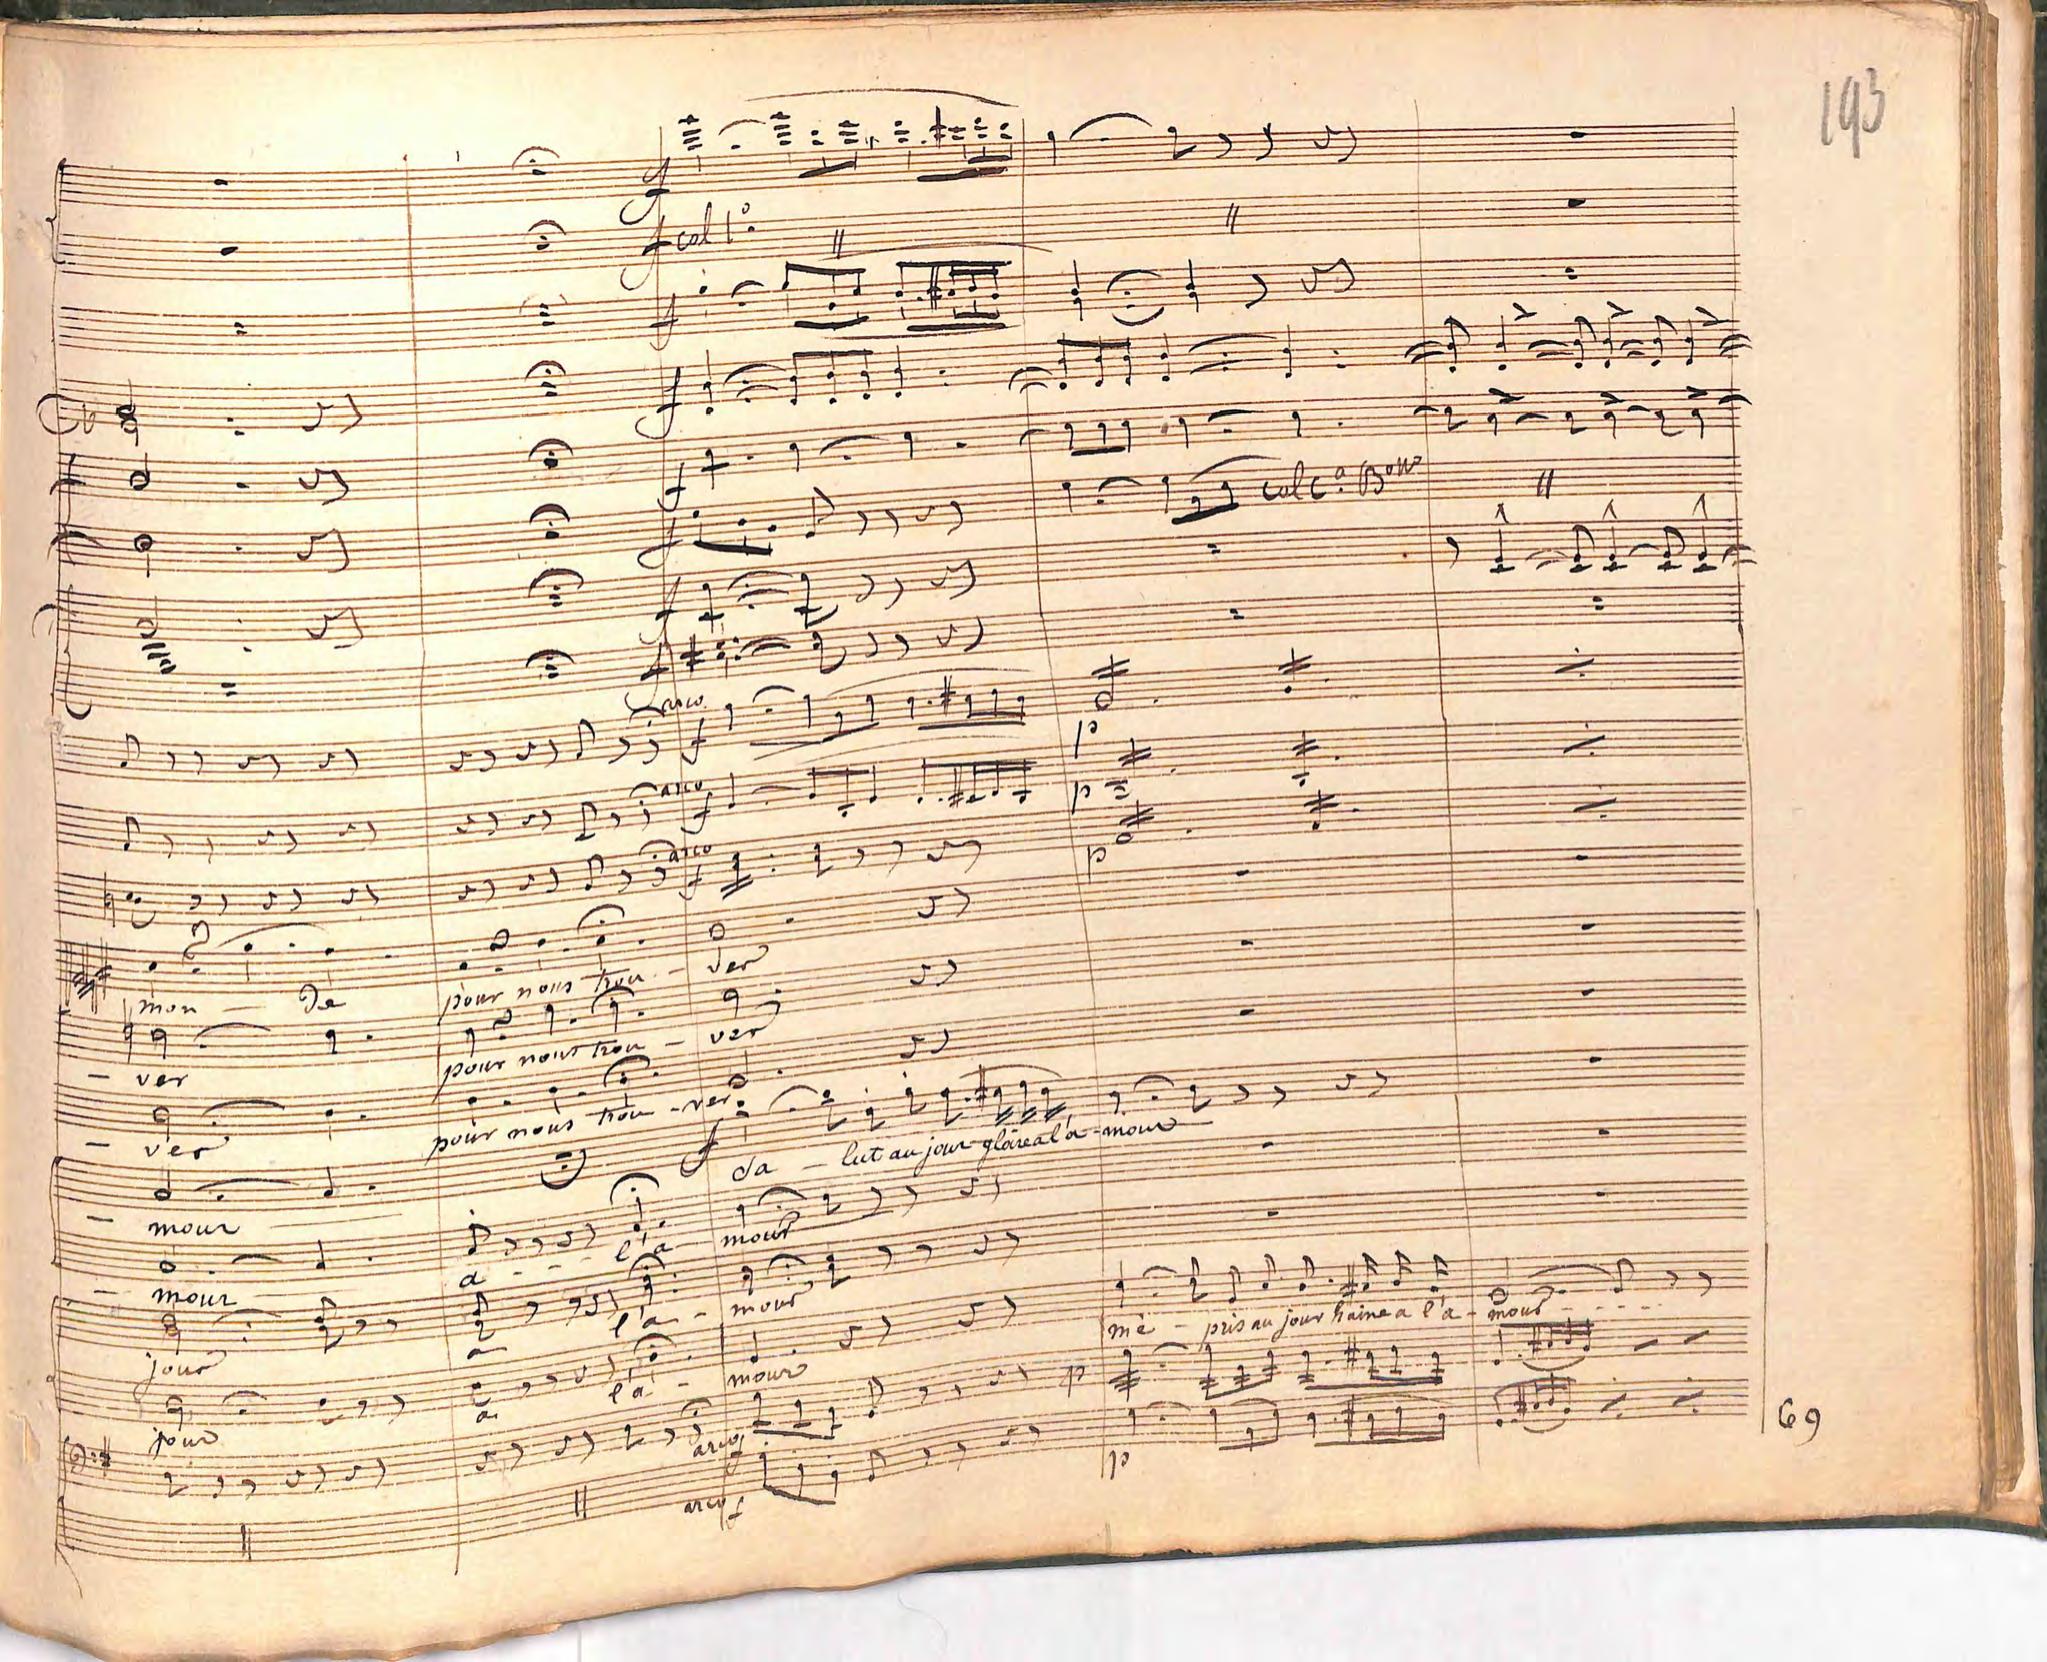 193
f
f col 1º
f
f
f
f col Cº Bon
f
f
arco f p
arco f p
arco f p
mon - de pour nous trou - ver
- ver pour nous trou - ver
- ver pour nous trou - ver
f da - lut au jour gloire a l'a - mour
- mour a - - - l'a - mour
- mour a l'a - mour
jour a l'a - mour
mé - pris au jour haine a l'a - mour - - - -
jour
arco f p
arco f p
69